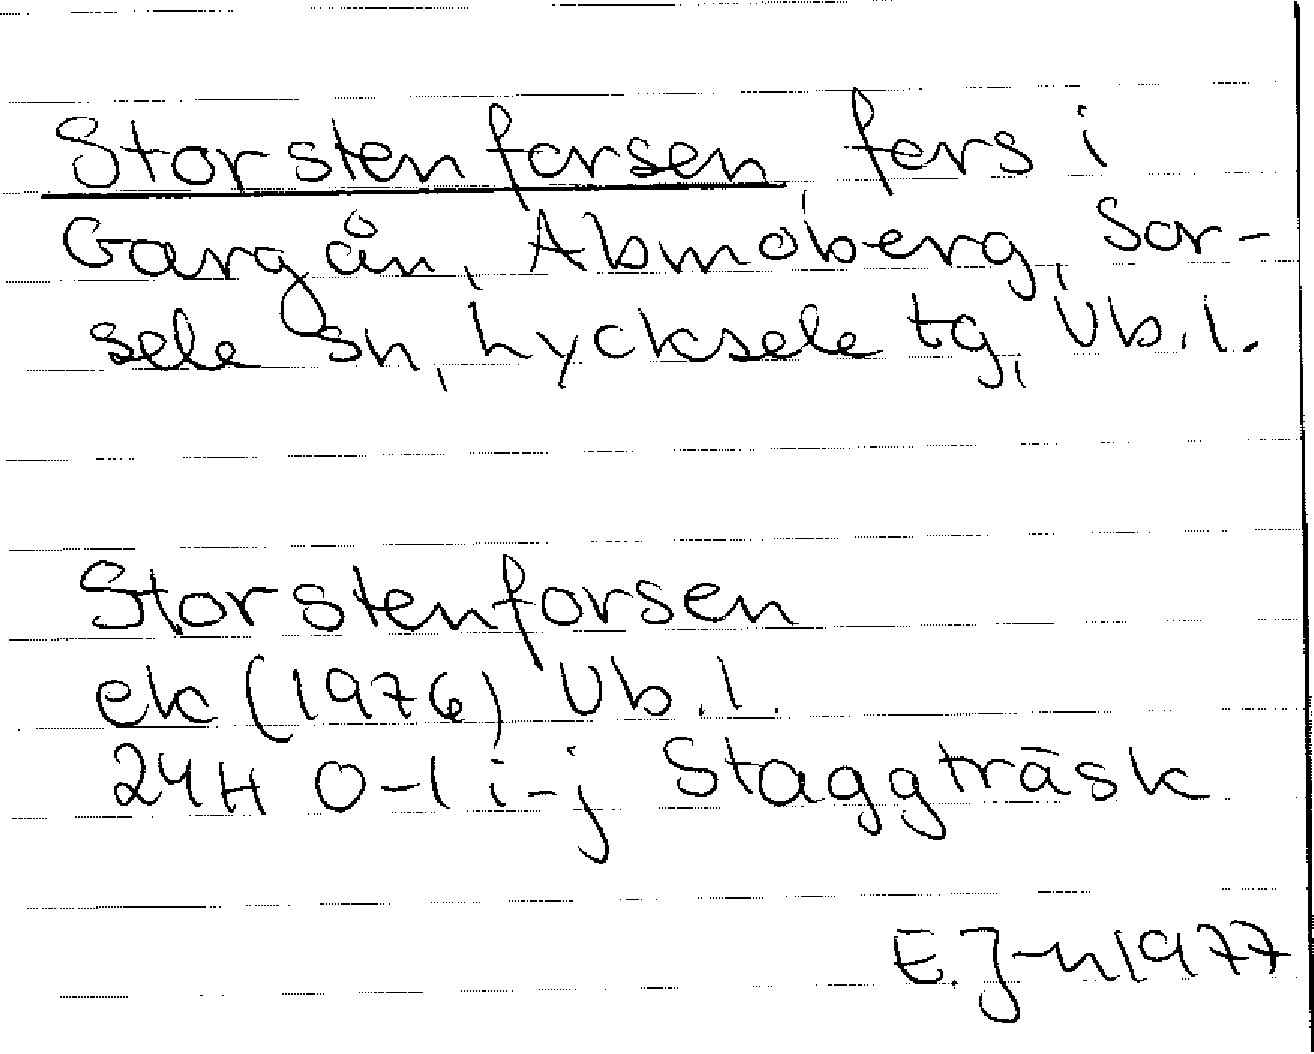 Storstenforsen, fors i
Gargån, Abmoberg, Sor-
sele sn, Lycksele tg, Vb.l.
Storstenforsen
ek (1976) Vb.l.
24H 0-1 i-j Staggträsk
E.J-n 1977